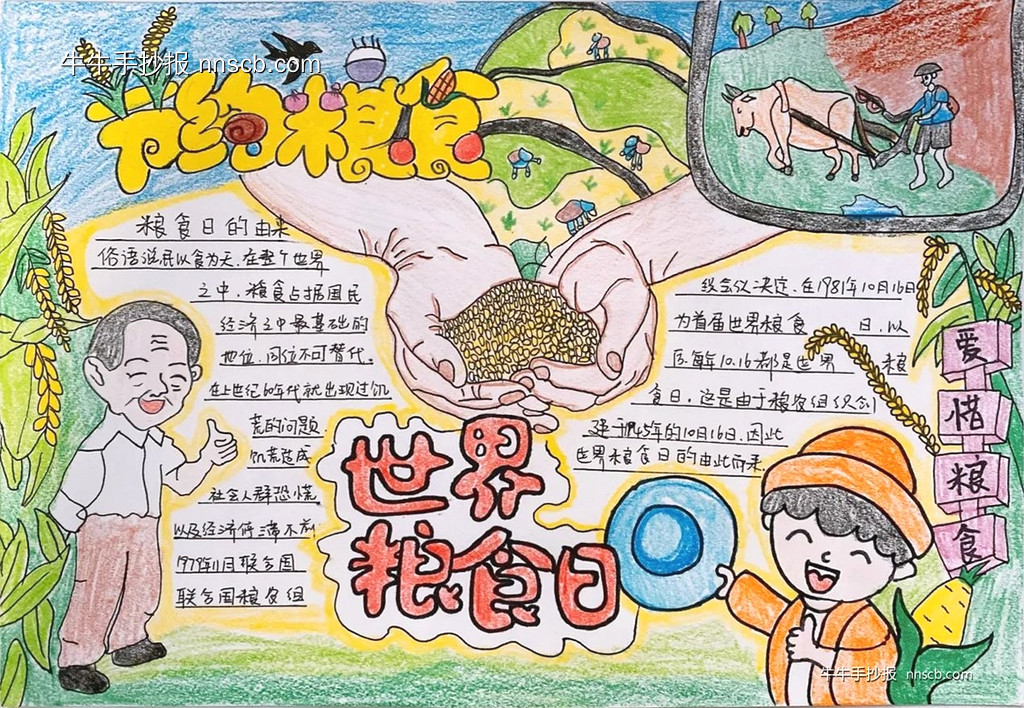 牛牛手抄报 nnscb.com
节约粮食
粮食日的由来
俗话说民以食为天.在整个世界
之中.粮食占据国民
经济之中最基础的
地位.同位不可替代.
在上世纪60年代就出现过饥
荒的问题
饥荒造成
社会人群恐慌
以及经济停滞不前
1979年11月联合国
联合国粮农组
织会议决定.在1981年10月16日
为首届世界粮食 日.以
后每年10.16都是世界 粮
食日.这是由于粮农组织创
建于1945年的10月16日.因此
世界粮食日的由此而来.
世界
粮食日
爱惜粮食
牛牛手抄报 nnscb.com